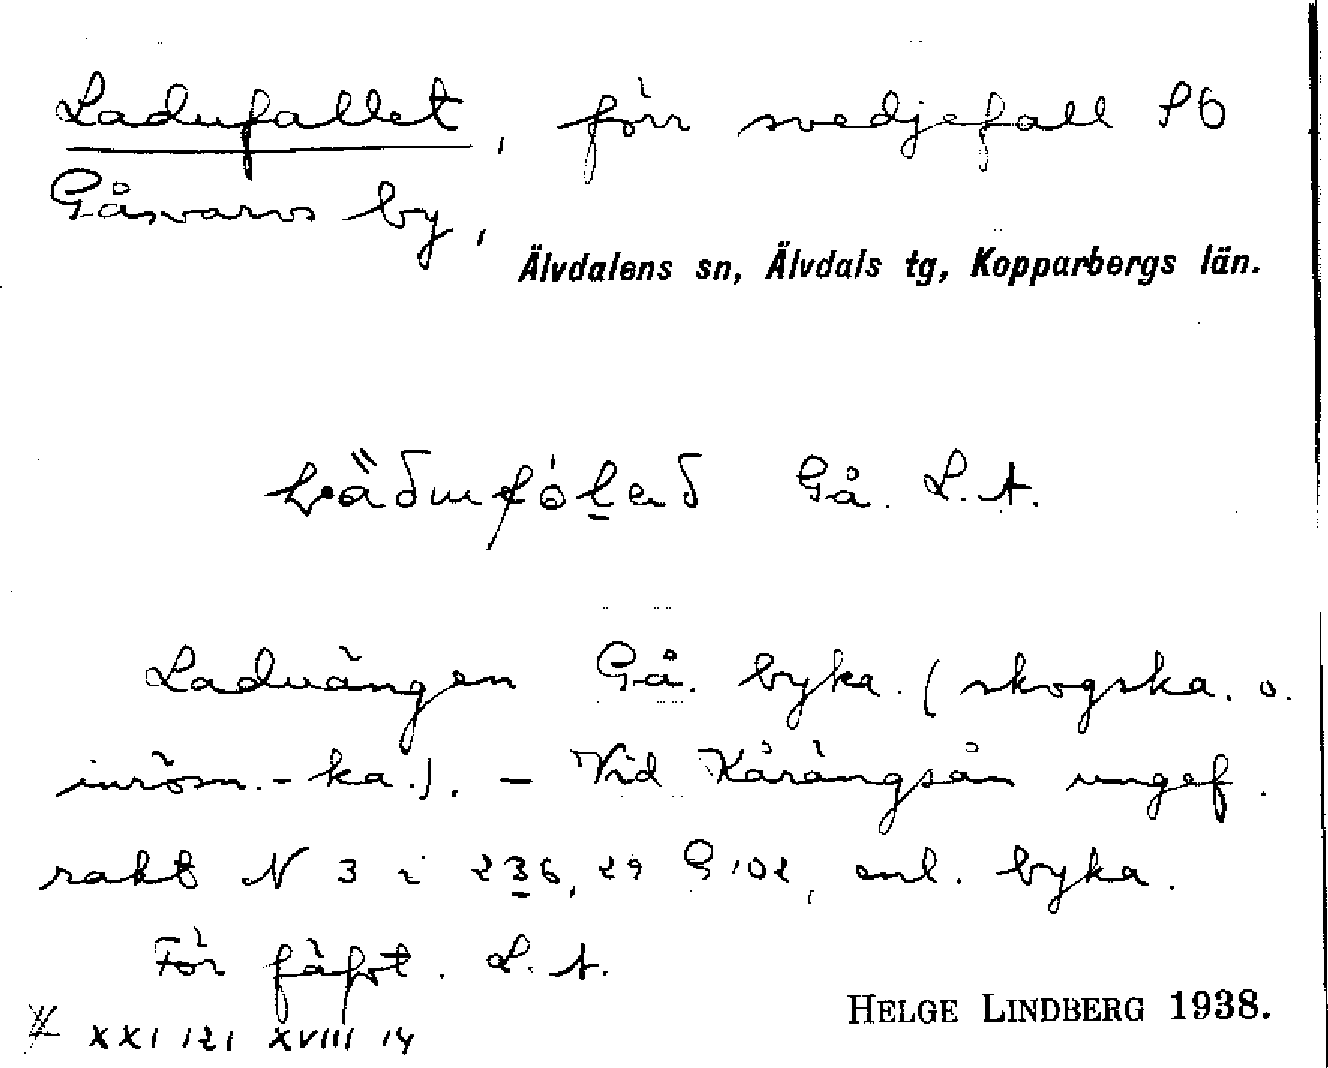 Ladufallet, förr svedjefall SÖ
Gåsvarvs by,
Älvdalens sn, Älvdals tg, Kopparbergs län.
Gå. L. A.
Laduängen Gå. byka. (skogska. o.
inröm.-ka.). – Vid Kårängsån ungef.
rakt N 3 i 236,29 G 102, enl. byka.
För fäfot. L. A.
HELGE LINDBERG 1938.
XXI 121 XVIII 14